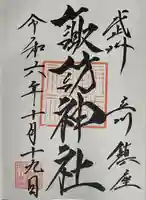 武州 立川 鎮座
諏訪神社
令和六年十月十九日